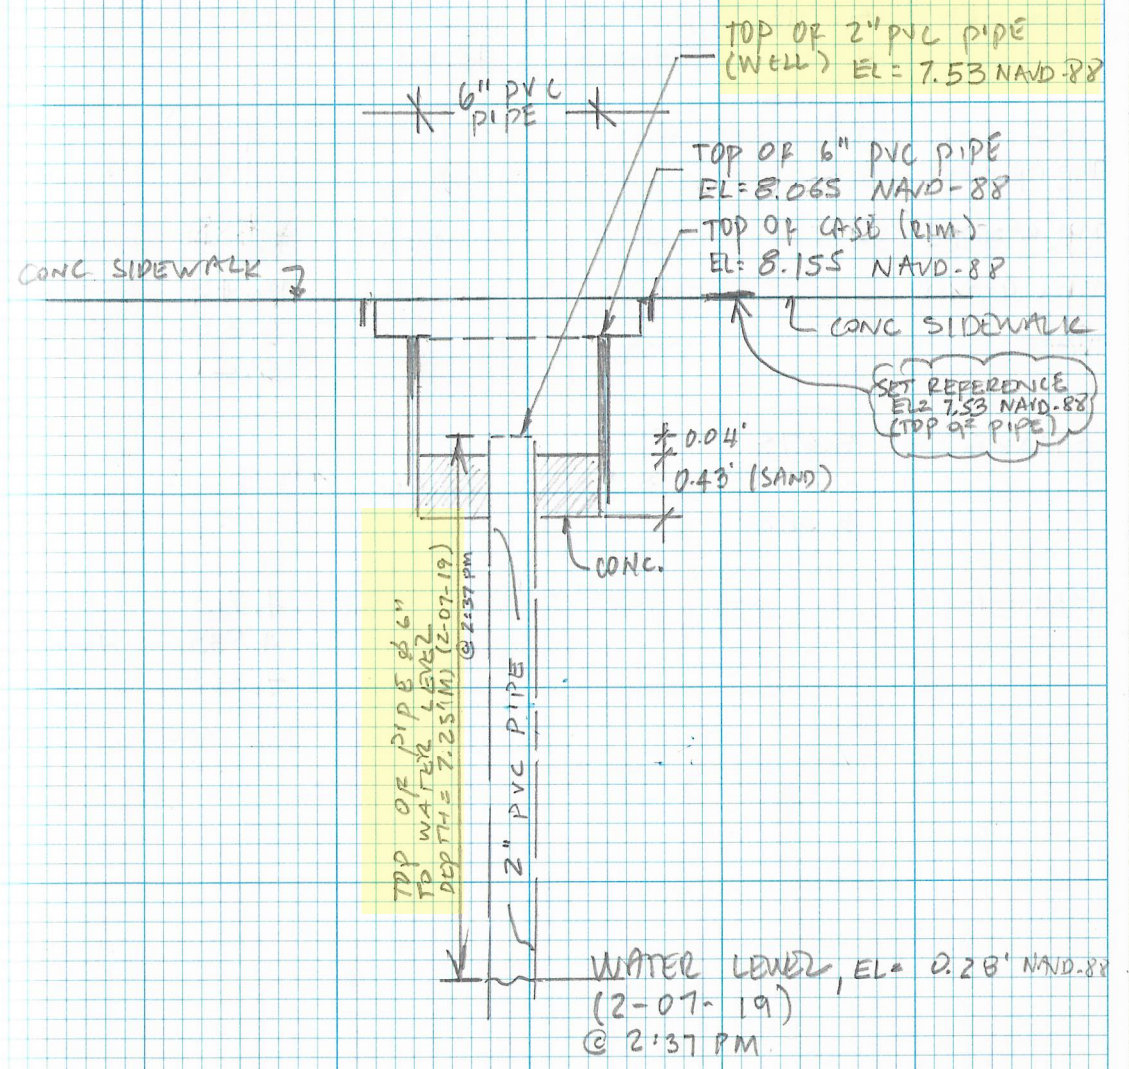 TOP OF 2" PVC PIPE
(WELL) EL = 7.53 NAVD-88
6" PVC
PIPE
TOP OF 6" PVC PIPE
EL=8.065 NAVD-88
TOP OF CASE (RIM)
EL= 8.155 NAVD-88
CONC SIDEWALK
CONC SIDEWALK
SET REFERENCE
EL= 7.53 NAVD-88
(TOP OF PIPE)
0.04'
0.43' (SAND)
CONC.
TOP OF PIPE 6"
TO WATER LEVEL
DEPTH = 7.25' (M) (2-07-19)
@ 2:37 PM
2" PVC PIPE
WATER LEVEL, EL= 0.28' NAVD-88
(2-07-19)
@ 2:37 PM